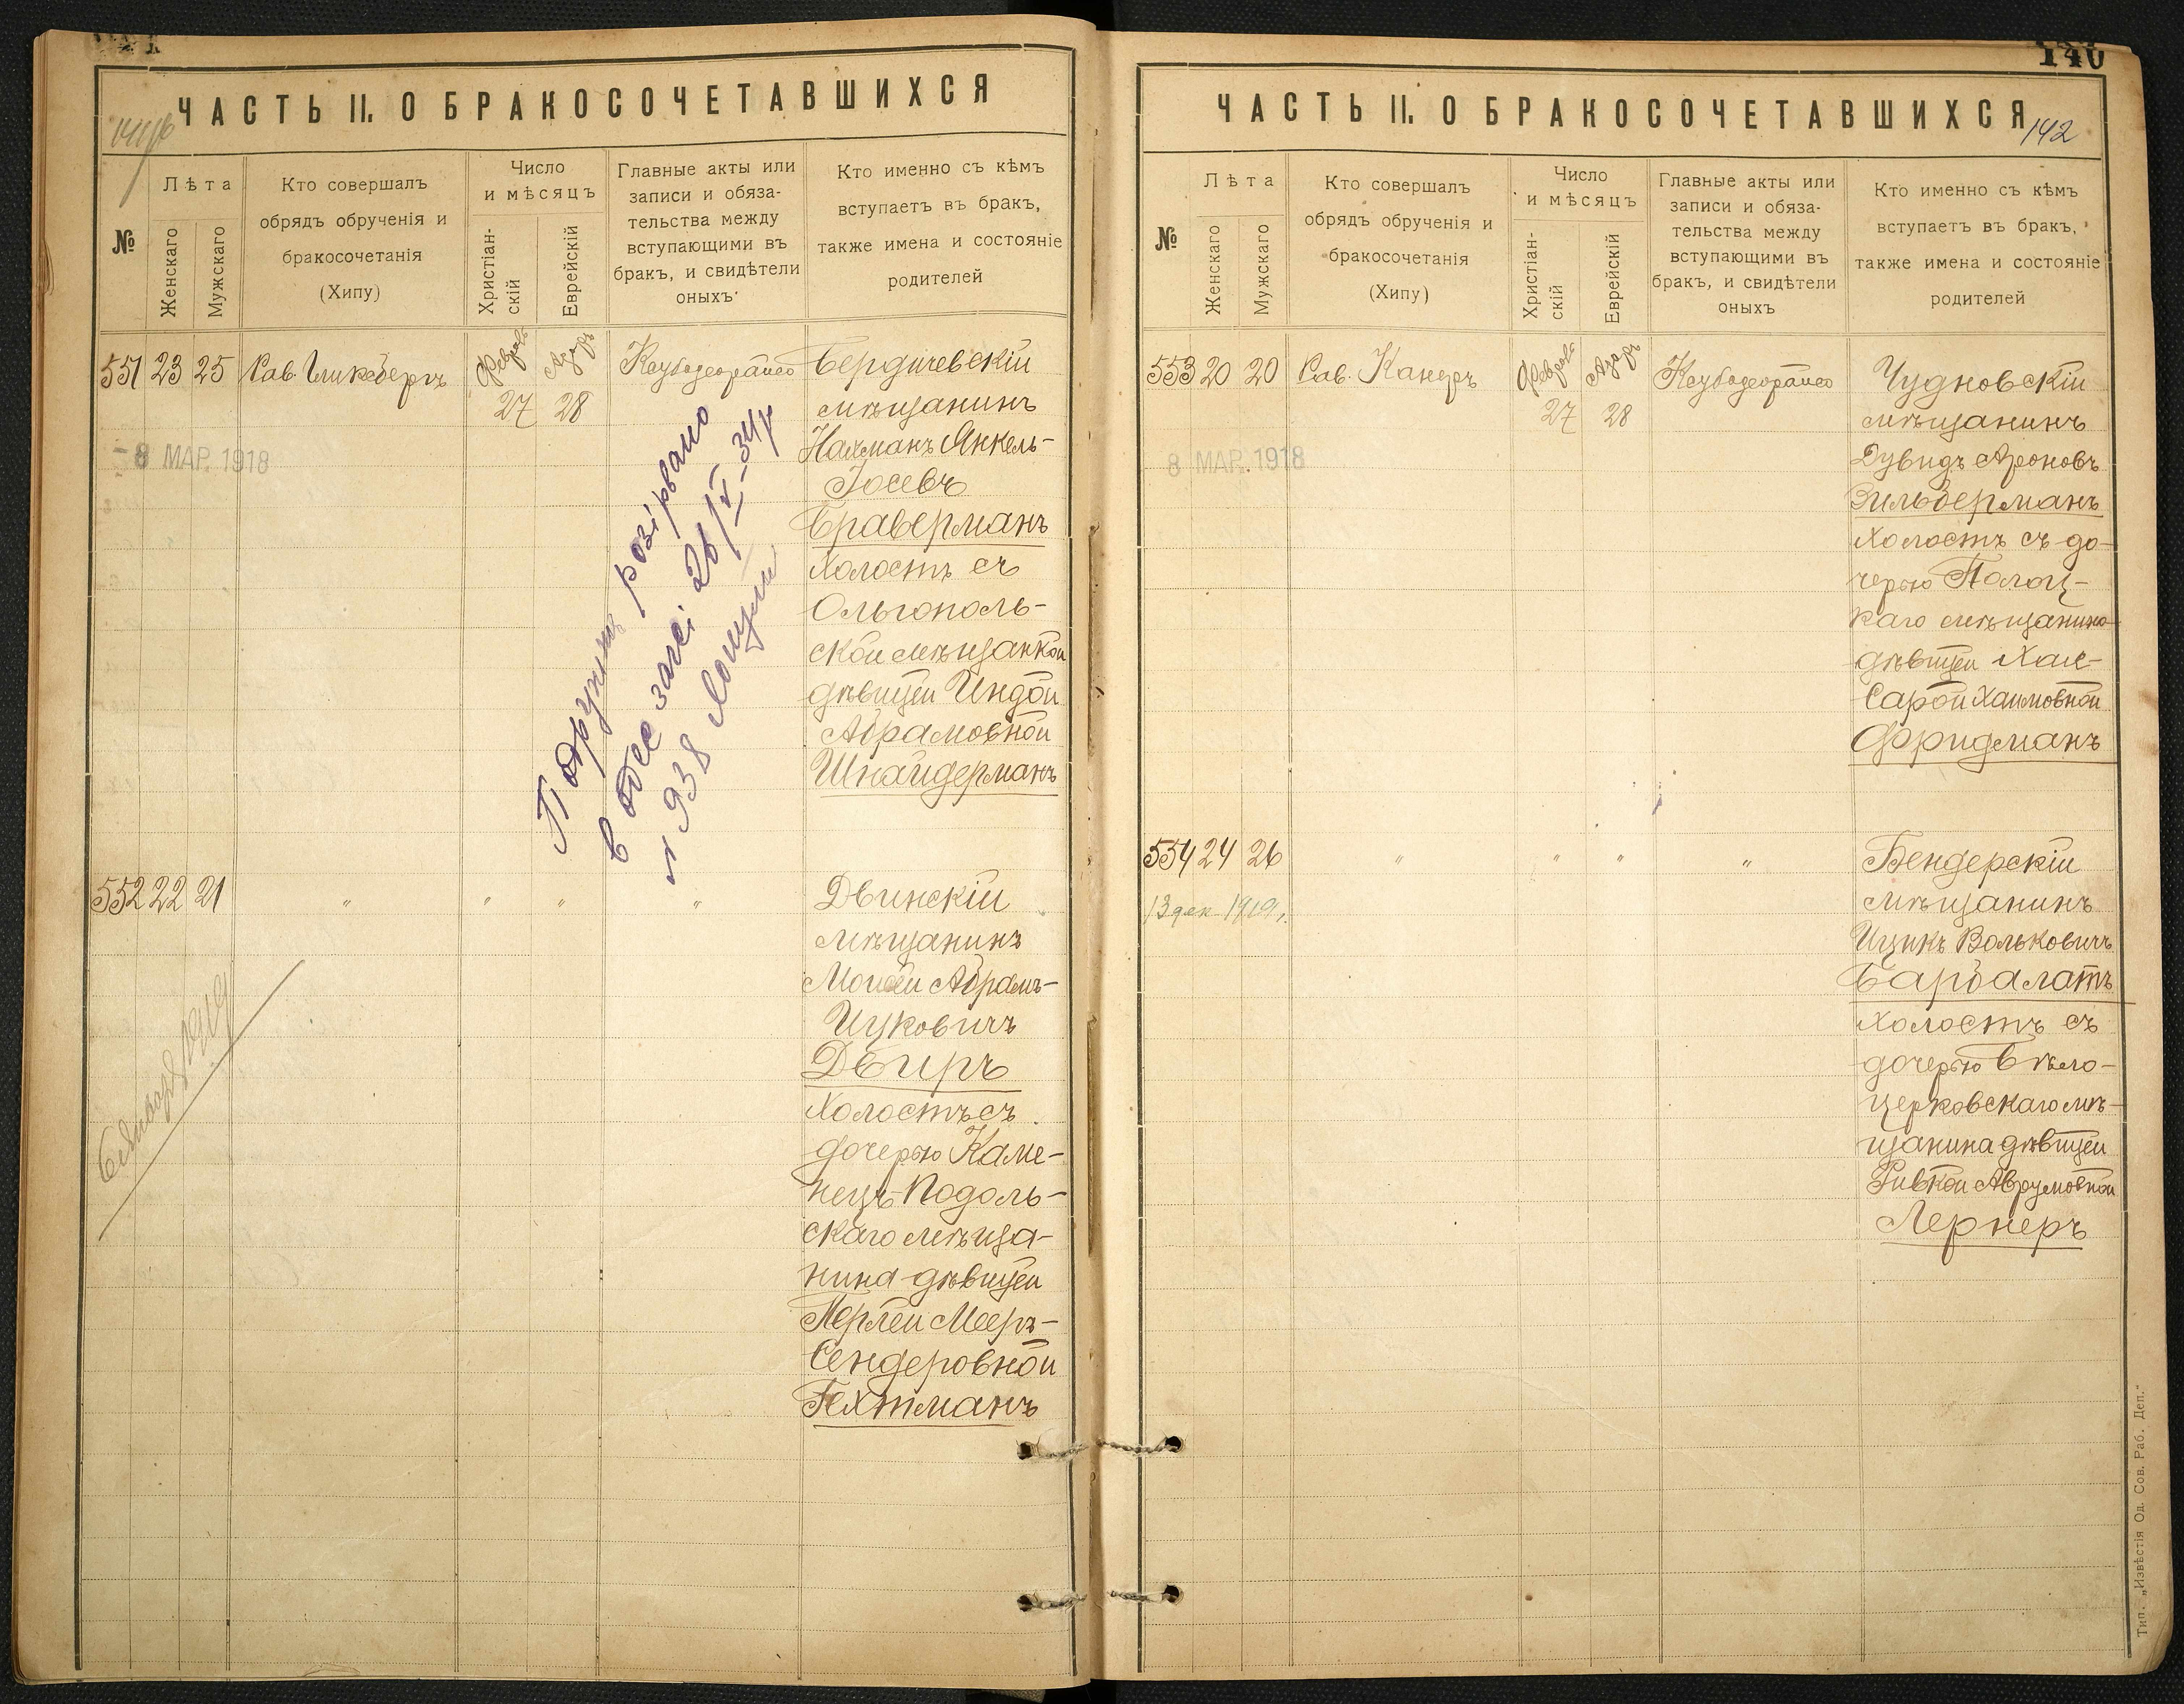 ЧАСТЬ II. О БРАКОСОЧЕТАВШИХСЯ
№
Лѣта
Женскаго
Мужскаго
Кто совершалъ
обрядъ обрученія и
бракосочетанія
(Хипу)
Число
и мѣсяцъ
Христіан-
скій
Еврейскій
Главные акты или
записи и обяза-
тельства между
вступающими въ
бракъ, и свидѣтели
оныхъ
Кто именно съ кѣмъ
вступаетъ въ бракъ,
также имена и состояніе
родителей
551 23 25 Рав. Гликсбергъ
Февраль 27
Адаръ 28
8 МАР. 1918
Бердичевскій
мѣщанинъ
Нахманъ Янкель-
Іосевъ
Браверманъ
холостъ съ
Ольгополь-
ской мѣщанкой
дѣвицей Индой
Абрамовной
Шнайдерманъ
розірвано
в Одесі 26/IV-34р
№ 938
552 22 21 " " " "
Двинскій
мѣщанинъ
Мойсей Абрамъ-
Ицковичъ
Двиръ
холостъ съ
дочерью Каме-
нецъ-Подоль-
скаго мѣща-
нина дѣвицей
Перлей Мееръ-
Сендеровной
Гехтманъ
140
ЧАСТЬ II. О БРАКОСОЧЕТАВШИХСЯ
142
№
Лѣта
Женскаго
Мужскаго
Кто совершалъ
обрядъ обрученія и
бракосочетанія
(Хипу)
Число
и мѣсяцъ
Христіан-
скій
Еврейскій
Главные акты или
записи и обяза-
тельства между
вступающими въ
бракъ, и свидѣтели
оныхъ
Кто именно съ кѣмъ
вступаетъ въ бракъ,
также имена и состояніе
родителей
553 20 20 Рав. Канеръ
Февраль 27
Адаръ 28
8 МАР. 1918
Чудновскій
мѣщанинъ
Дувидъ Ароновъ
Зильберманъ
холостъ съ до-
черью Полоц-
каго мѣщанина
дѣвицей Хая-
Сарой Хаимовной
Фридманъ
554 24 26 " " " "
13 дек 1919 г.
Бендерскій
мѣщанинъ
Ицикъ Вольковичъ
Барбалатъ
холостъ съ
дочерью Бѣло-
церковскаго мѣ-
щанина дѣвицей
Ривкой Аврумовной
Лернеръ
Тип. „Извѣстія Од. Сов. Раб. Деп."